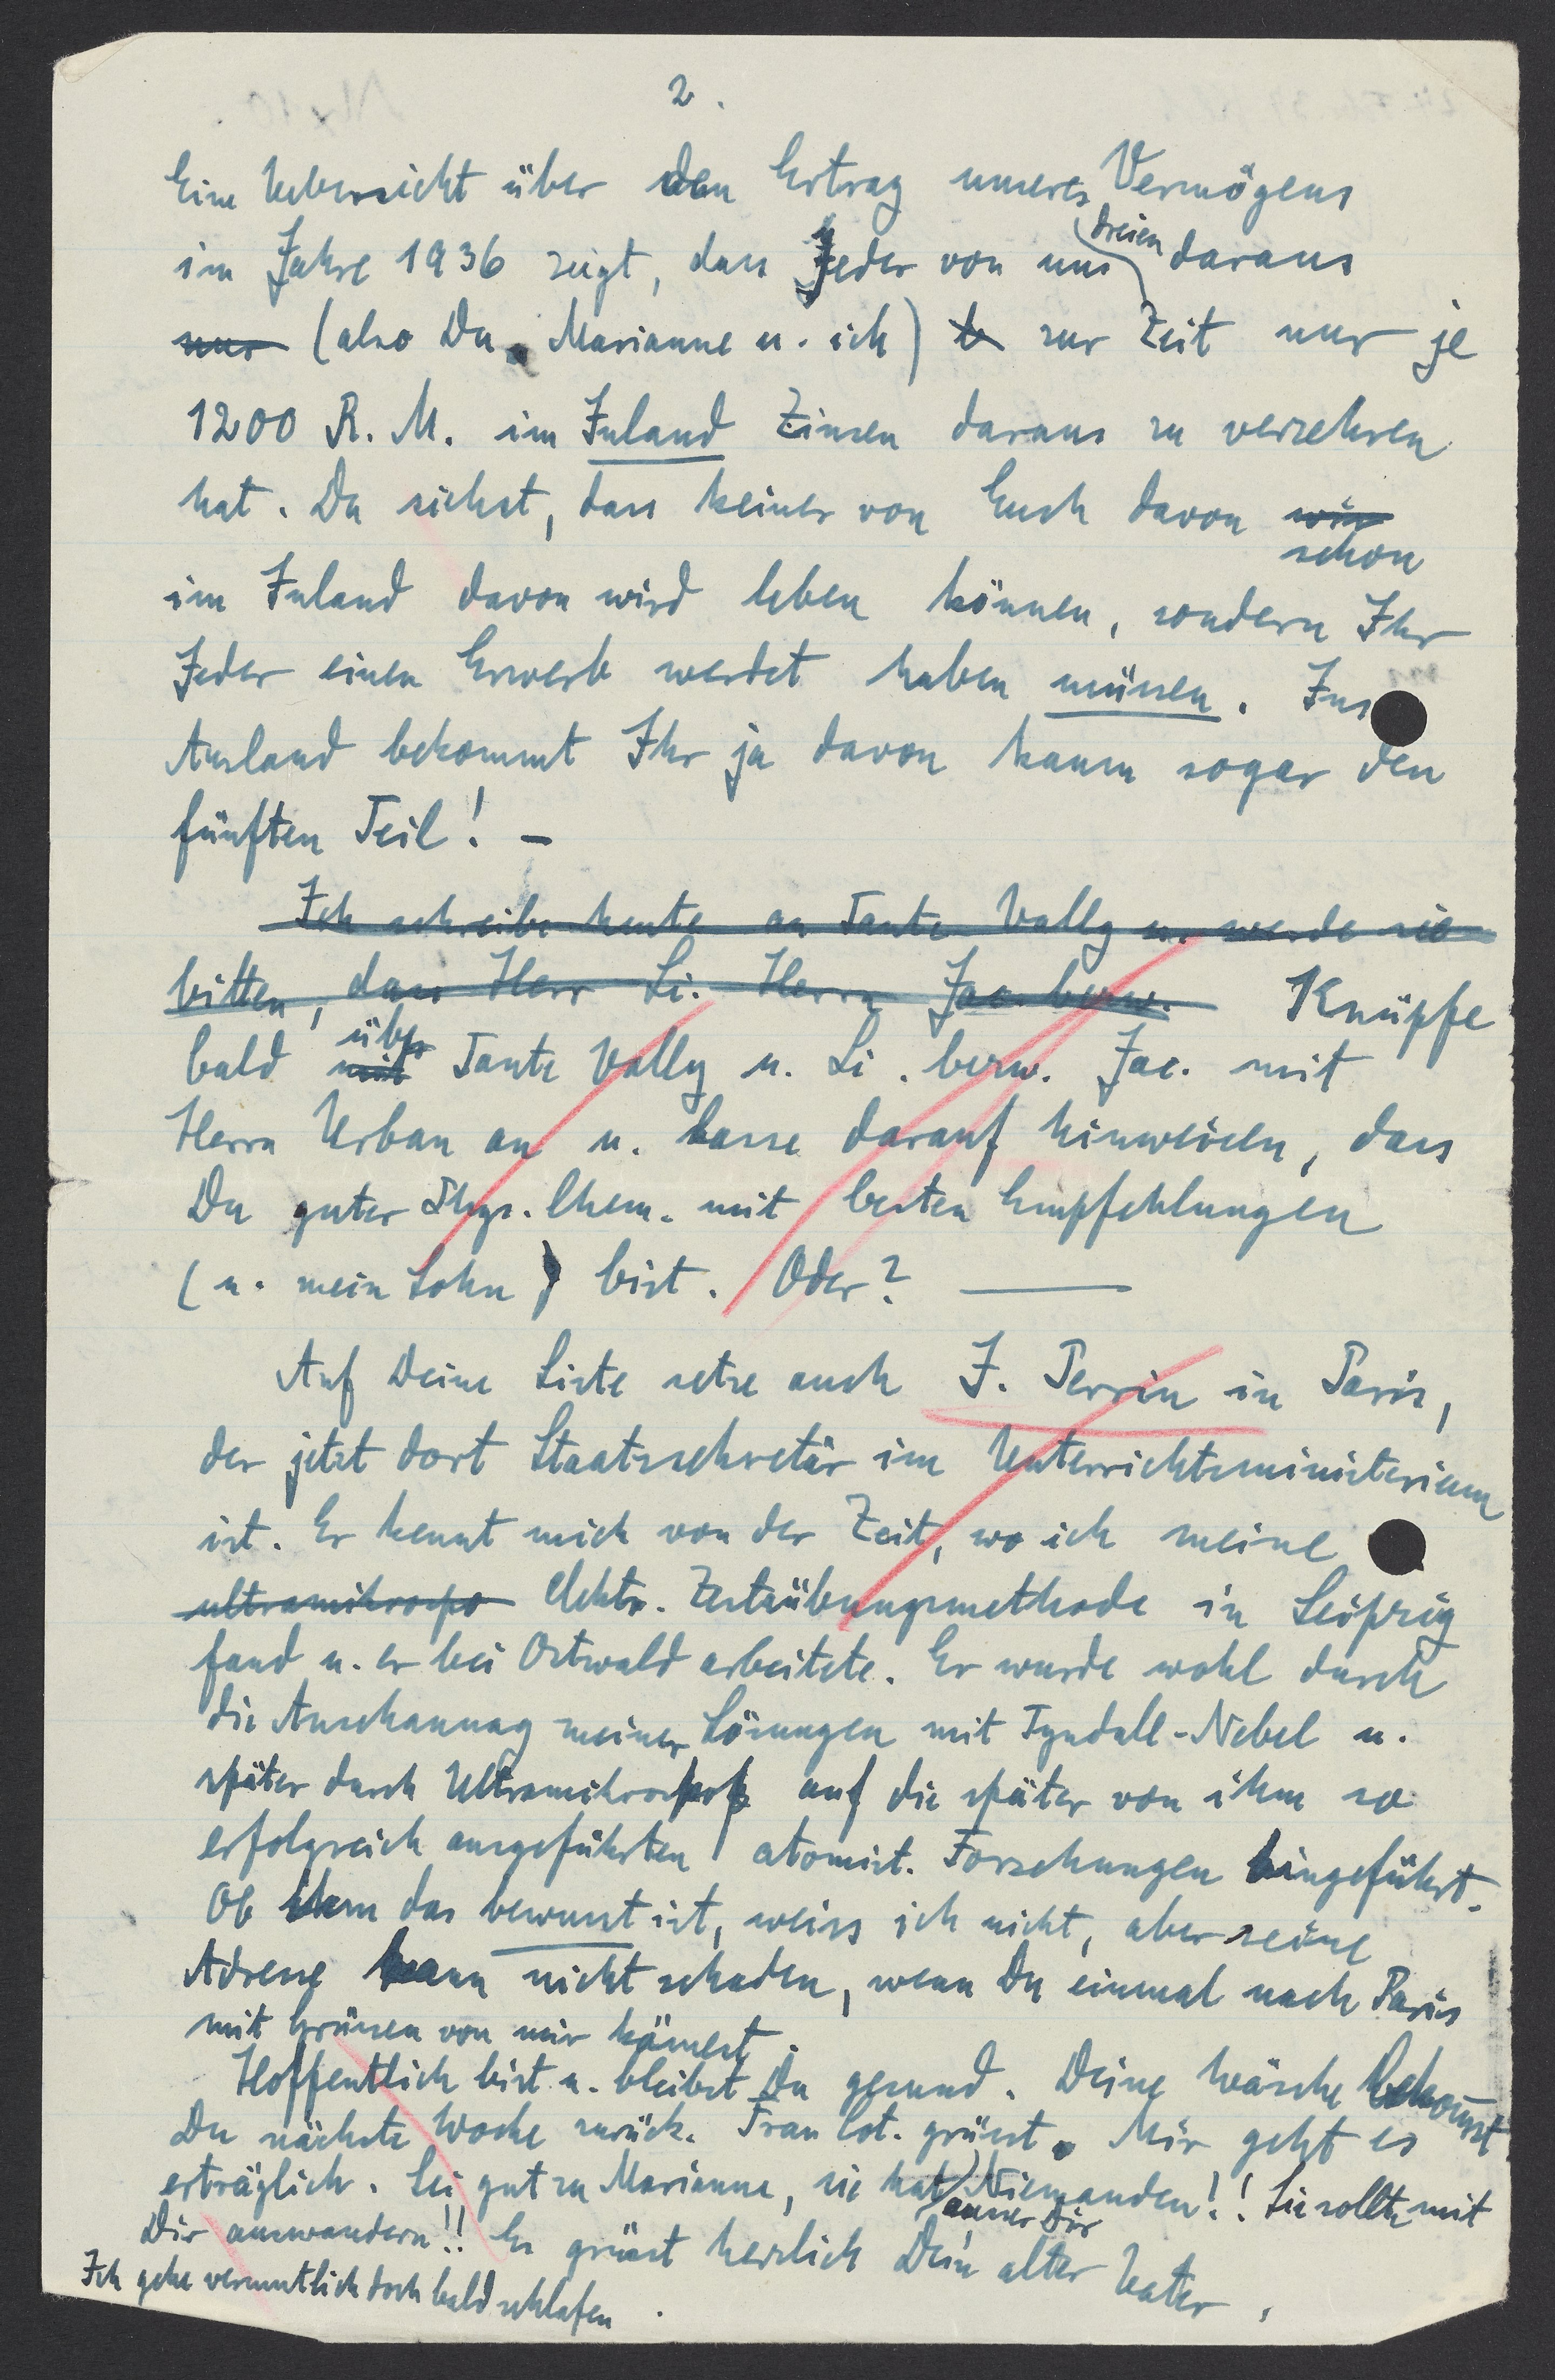 2.
Eine Uebersicht über den Ertrag unseres Vermögens
im Jahre 1936 zeigt, dass Jeder von uns dreien daraus
nur (also Du, Marianne u. ich) b zur Zeit nur je
1200 R. M. im Inland Zinsen daraus zu verzehren
hat. Du siehst, dass keiner von Euch davon wir
schon
im Inland davon wird leben können, sondern Ihr
Jeder einen Erwerb werdet haben müssen. Ins
Ausland bekommt Ihr ja davon kaum sogar den
fünften Teil! –
Ich schreibe heute an Tante Vally u. werde sie
bitten, dass Herr Li. Herrn Jac. bezw. Knüpfe
bald mit über Tante Vally u. Li. bezw. Jac. mit
Herrn Urban an u. lasse darauf hinweisen, dass
Du guter Phys. Chem. mit besten Empfehlungen
(u. mein Sohn) bist. Oder? —
Auf Deine Liste setze auch J. Perrin in Paris,
der jetzt dort Staatssekretär im Unterrichtsministerium
ist. Er kennt mich von der Zeit, wo ich meine
ultramikrospo elektr. Zerstäubungsmethode in Leipzig
fand u. er bei Ostwald arbeitete. Er wurde wohl durch
die Anschauung meiner Lösungen mit Tyndall-Nebel u.
später durch Ultramikroskop auf die später von ihm so
erfolgreich ausgeführten atomist. Forschungen hingeführt.
Ob ihm das bewusst ist, weiss ich nicht, aber seine
Adresse kann nicht schaden, wenn Du einmal nach Paris
mit Grüssen von mir kämest.
Hoffentlich bist u. bleibst Du gesund. Deine Wäsche bekommst
Du nächste Woche zurück. Frau Cot. grüsst. Mir geht es
erträglich. Sei gut zu Marianne, sie hat Niemanden!! Sie sollte mit
ausser Dir
Dir auswandern!! Es grüsst herzlich Dein alter Vater.
Ich gehe vermutlich doch bald schlafen.